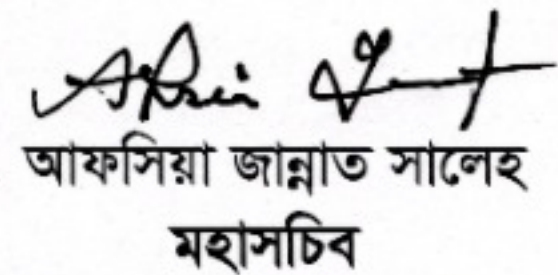 আফসিয়া জান্নাত সালেহ
মহাসচিব